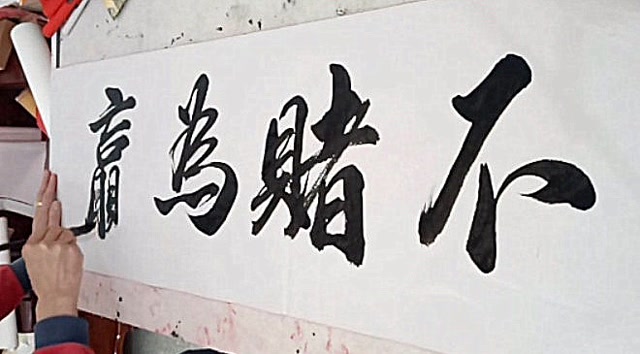 不賭為贏